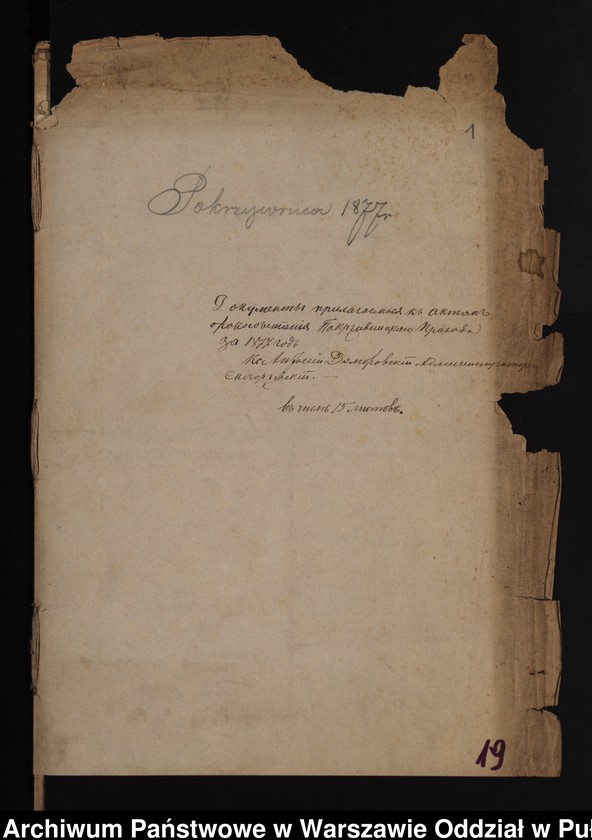 1
Pokrzywnica 1877 r
Документы прилагаемыя къ актамъ
бракосочетанія Покржывницкаго Прихода
за 1877 годъ
Кс. Антоній Администраторъ
въ числѣ 15 листовъ.
19
Archiwum Państwowe w Warszawie Oddział w Puł